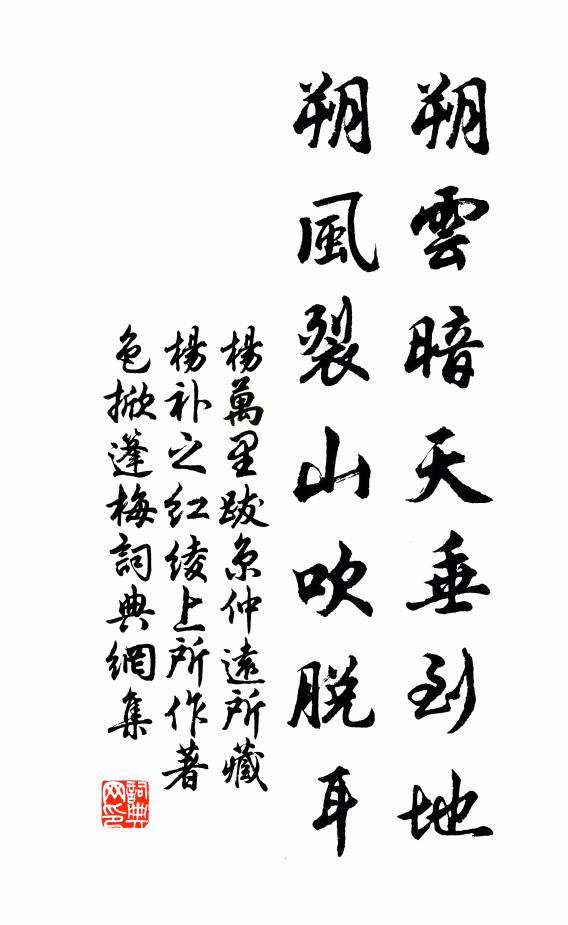 朔雲暗天垂到地
朔風裂山吹脫耳
楊萬里跋京仲遠所藏
楊补之红绫上所作著
色掀蓬梅詞典網集
詞典网印